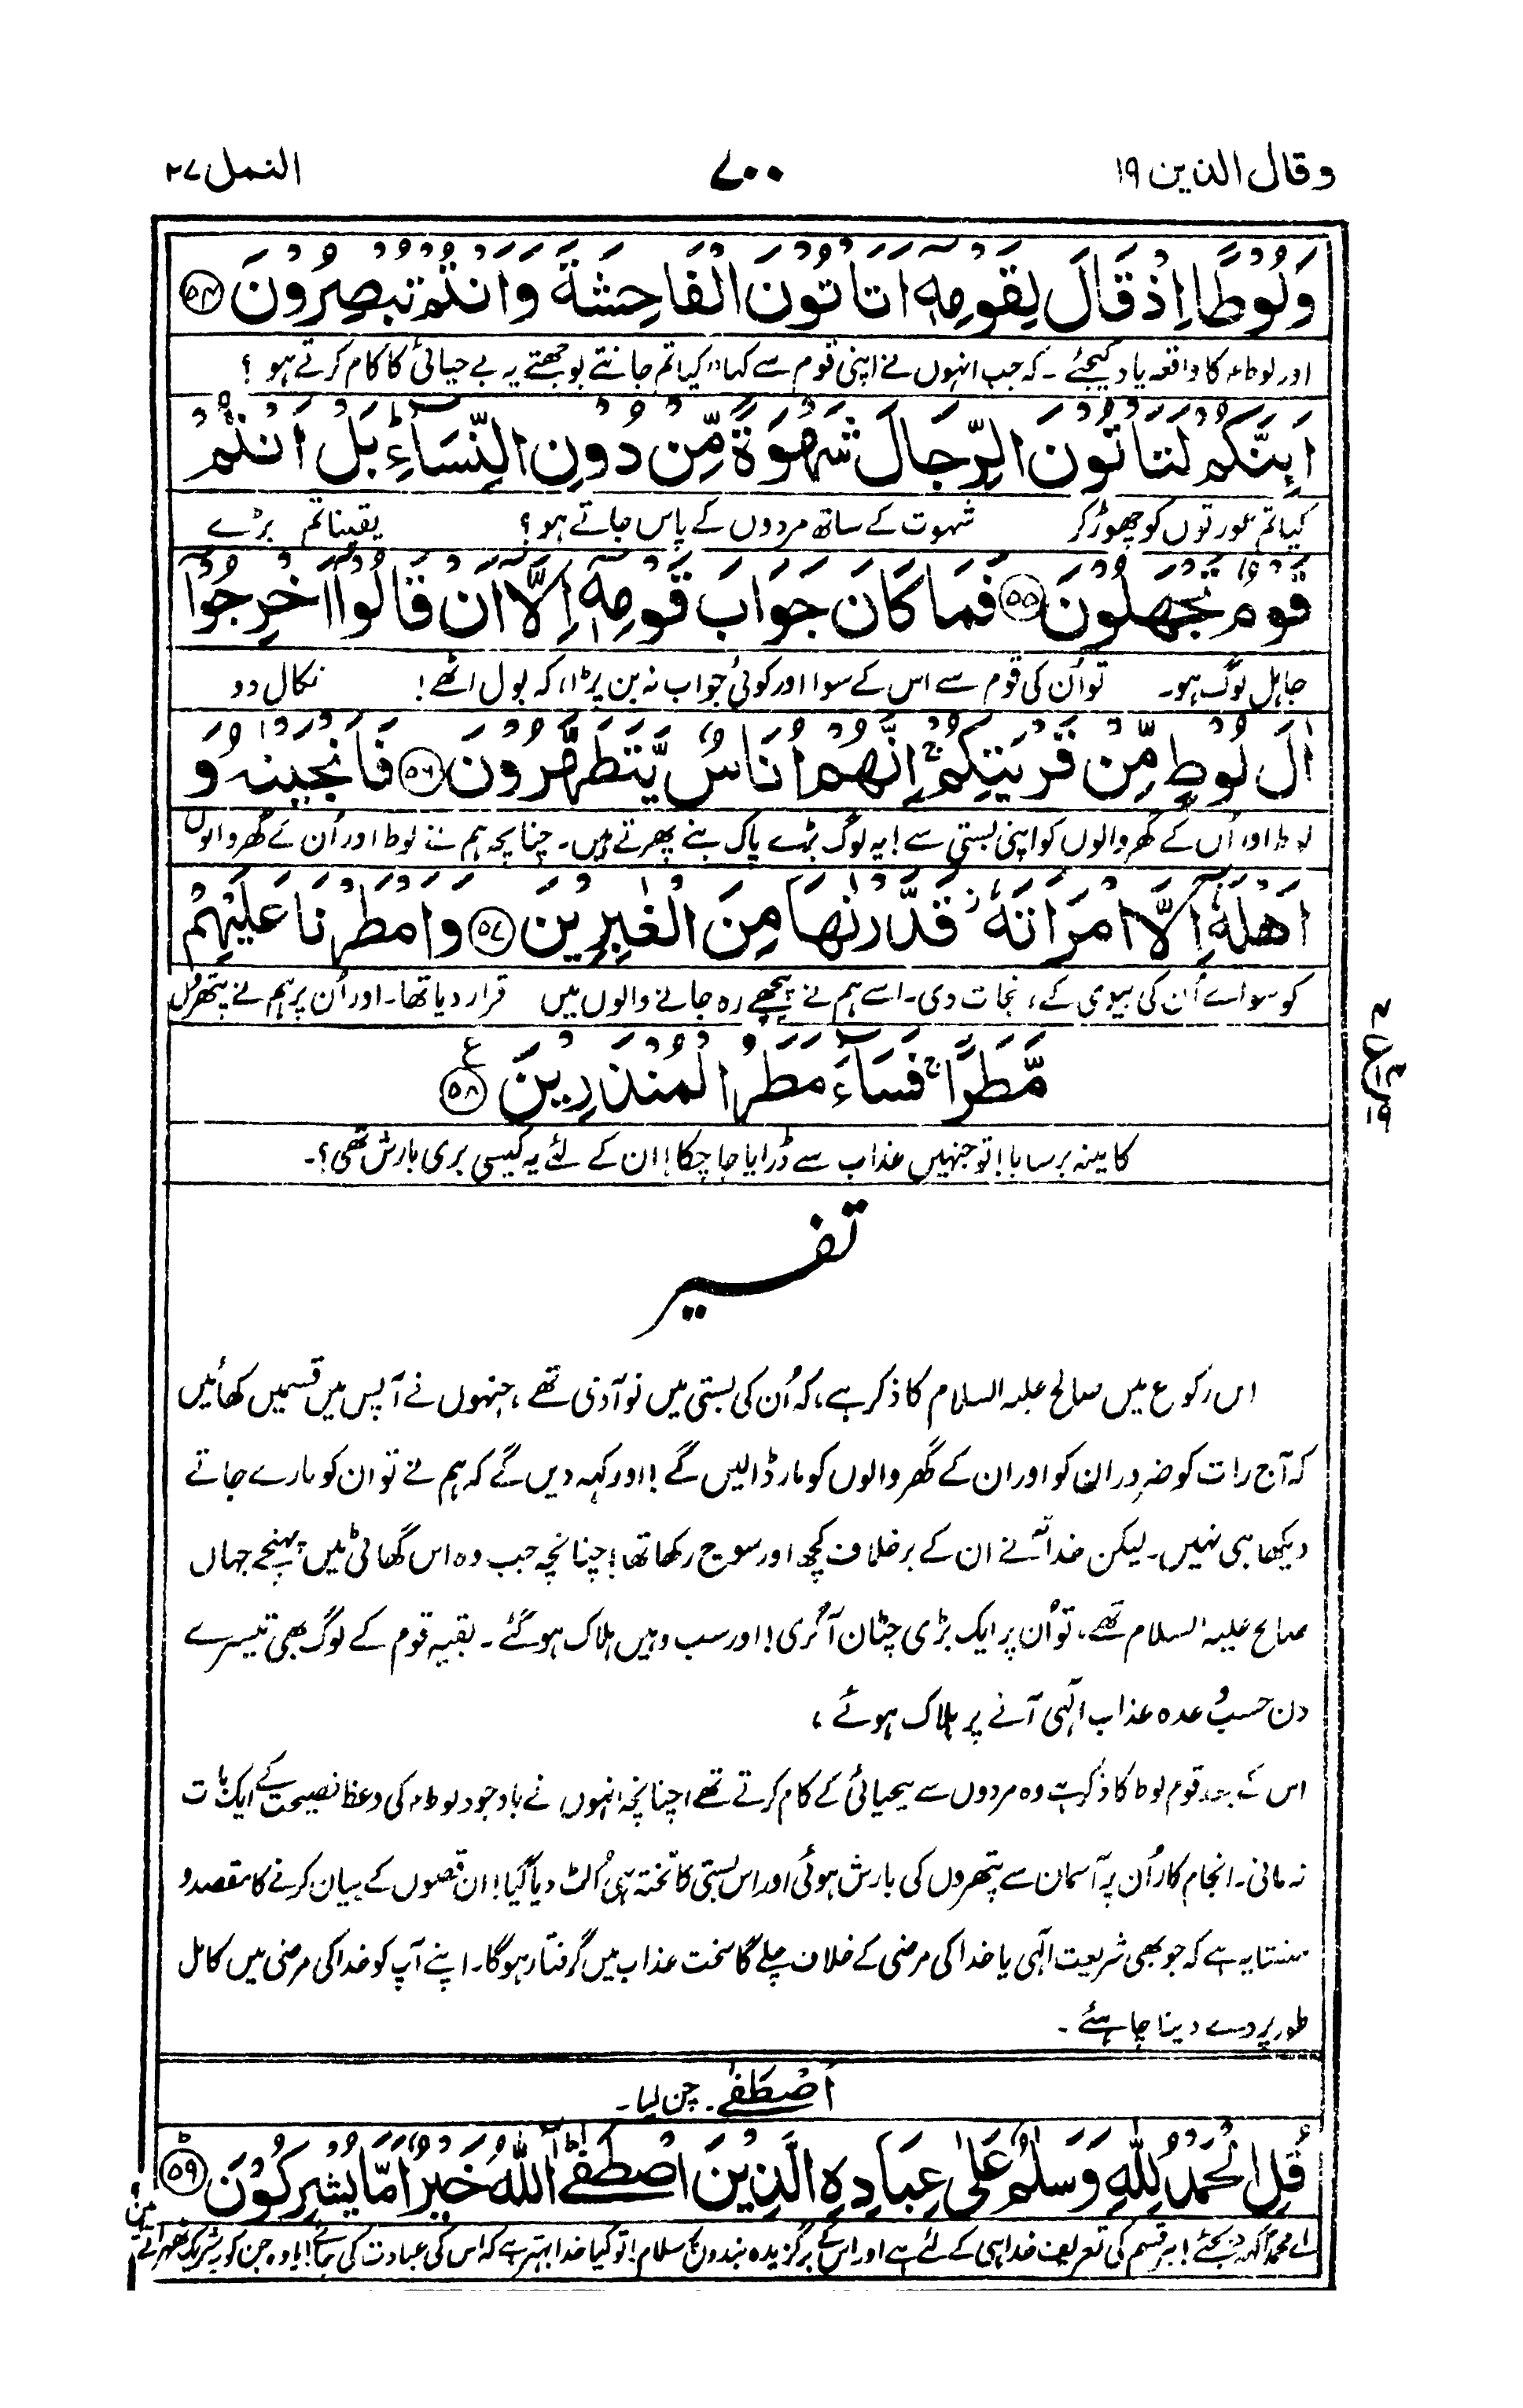 وقال الذین ۱۹
۷۰۰
النمل ۲۷
وَلُوْطًا اِذْ قَالَ لِقَوْمِهٖۤ اَتَاْتُوْنَ الْفَاحِشَةَ وَاَنْتُمْ تُبْصِرُوْنَ ﴿۵۴﴾
اور لوطؑ کا واقعہ یاد کیجئے ۔ کہ جب انہوں نے اپنی قوم سے کہا "کیا تم جانتے بوجھتے یہ بے حیائی کا کام کرتے ہو ؟
اَئِنَّكُمْ لَتَاْتُوْنَ الرِّجَالَ شَهْوَةً مِّنْ دُوْنِ النِّسَآءِ ؕ بَلْ اَنْتُمْ
کیا تم عورتوں کو چھوڑ کر شہوت کے ساتھ مردوں کے پاس جاتے ہو ؟ یقیناً تم بڑے
قَوْمٌ تَجْهَلُوْنَ ﴿۵۵﴾ فَمَا كَانَ جَوَابَ قَوْمِهٖۤ اِلَّاۤ اَنْ قَالُوْۤا اَخْرِجُوْۤا
جاہل لوگ ہو۔ تو اُن کی قوم سے اس کے سوا اور کوئی جواب نہ بن پڑا، کہ بول اٹھے ! نکال دو
اٰلَ لُوْطٍ مِّنْ قَرْيَتِكُمْ ۚ اِنَّهُمْ اُنَاسٌ يَّتَطَهَّرُوْنَ ﴿۵۶﴾ فَاَنْجَيْنٰهُ وَ
لوط اور اُن کے گھر والوں کو اپنی بستی سے ! یہ لوگ بڑے پاک بنے پھرتے ہیں۔ چنانچہ ہم نے لوط اور اُن کے گھر والوں
اَهْلَهٗۤ اِلَّا امْرَاَتَهٗ ؗ قَدَّرْنٰهَا مِنَ الْغٰبِرِيْنَ ﴿۵۷﴾ وَاَمْطَرْنَا عَلَيْهِمْ
کو سوائے اُن کی بیوی کے، نجات دی۔ اسے ہم نے پیچھے رہ جانے والوں میں قرار دیا تھا۔ اور اُن پر ہم نے پتھروں
مَّطَرًا ۚ فَسَآءَ مَطَرُ الْمُنْذَرِيْنَ ﴿۵۸﴾ ع
کا مینہ برسایا ! تو جنہیں عذاب سے ڈرایا جا چکا ! ان کے لئے یہ کیسی بری بارش تھی ؟۔
تفسیر
اس رکوع میں صالح علیہ السلام کا ذکر ہے، کہ اُن کی بستی میں نو آدمی تھے ، جنہوں نے آپس میں قسمیں کھائیں
کہ آج رات کو ضرور ان کو اور ان کے گھر والوں کو مار ڈالیں گے ! اور کہہ دیں گے کہ ہم نے تو ان کو مارے جاتے
دیکھا ہی نہیں۔ لیکن خدا نے ان کے برخلاف کچھ اور سوچ رکھا تھا ! چنانچہ جب وہ اس گھاٹی میں پہنچے جہاں
صالح علیہ السلام تھے، تو اُن پر ایک بڑی چٹان آ گری ! اور سب وہیں ہلاک ہو گئے ۔ بقیہ قوم کے لوگ بھی تیسرے
دن حسب وعدہ عذاب الٰہی آنے پر ہلاک ہوئے ،
اس کے بعد قوم لوط کا ذکر ہے وہ مردوں سے بیحیائی کے کام کرتے تھے ! چنانچہ انہوں نے باوجود لوطؑ کی وعظ نصیحت کے ایک بات
نہ مانی۔ انجام کار اُن پر آسمان سے پتھروں کی بارش ہوئی اور اس بستی کا تختہ ہی اُلٹ دیا گیا ! ان قصوں کے بیان کرنے کا مقصد و
منشا یہ ہے کہ جو بھی شریعت الٰہی یا خدا کی مرضی کے خلاف چلے گا سخت عذاب میں گرفتار ہو گا۔ اپنے آپ کو خدا کی مرضی میں کامل
طور پر دے دینا چاہئے ۔
اَصْطَفٰے ۔ چن لیا ۔
قُلِ الْحَمْدُ لِلّٰهِ وَسَلٰمٌ عَلٰى عِبَادِهِ الَّذِيْنَ اصْطَفٰے ؕ آللّٰهُ خَيْرٌ اَمَّا يُشْرِكُوْنَ ﴿۵۹﴾
اے محمدؐ کہہ دیجئے ! ہر قسم کی تعریف خدا ہی کے لئے ہے اور اس کے برگزیدہ بندوں پر سلام ! تو کیا خدا بہتر ہے کہ اس کی عبادت کی جائے ! یا وہ جن کو یہ شریک ٹھہراتے ہیں